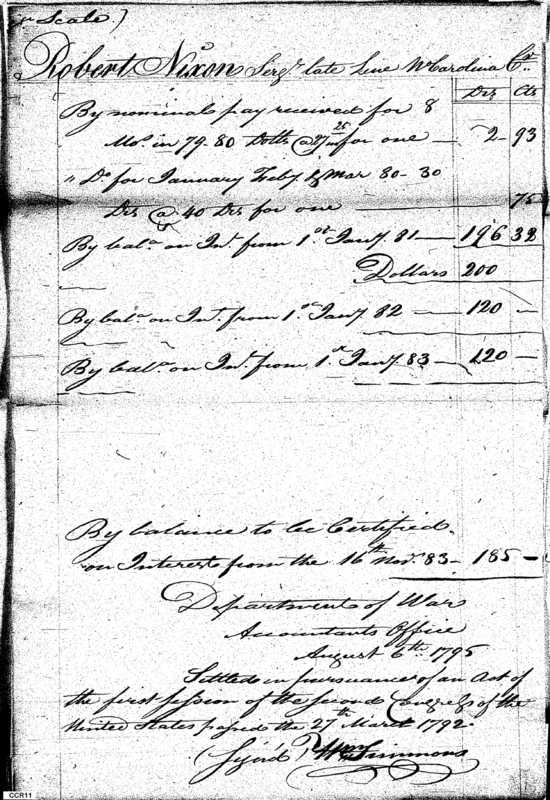 Scale)
Robert Nixon Serjt. late Line N Carolina Cr.
Drs Cts
By nominal pay received for 8
Mos. in 79. 80 Dolls @ 27 25 for one — 2 - 93
" Do. for January Feby & Mar 80 - 30
Drs @ 40 Drs for one — 75
By bala. on Int. from 1st Jany. 81 — 196 32
Dollars 200
By bala. on Int. from 1st Jany. 82 — 120 —
By bala. on Int. from 1st Jany. 83 — 120 —
By balance to be Certified
on Interest from the 16th Novr. 83 - 185 —
Department of War
Accountants Office
August 6th. 1795
Settled in pursuance of an Act of
the first Session of the second Congress of the
United States passed the 27th March 1792.
(Sign'd) Wm Simmons
CCR11